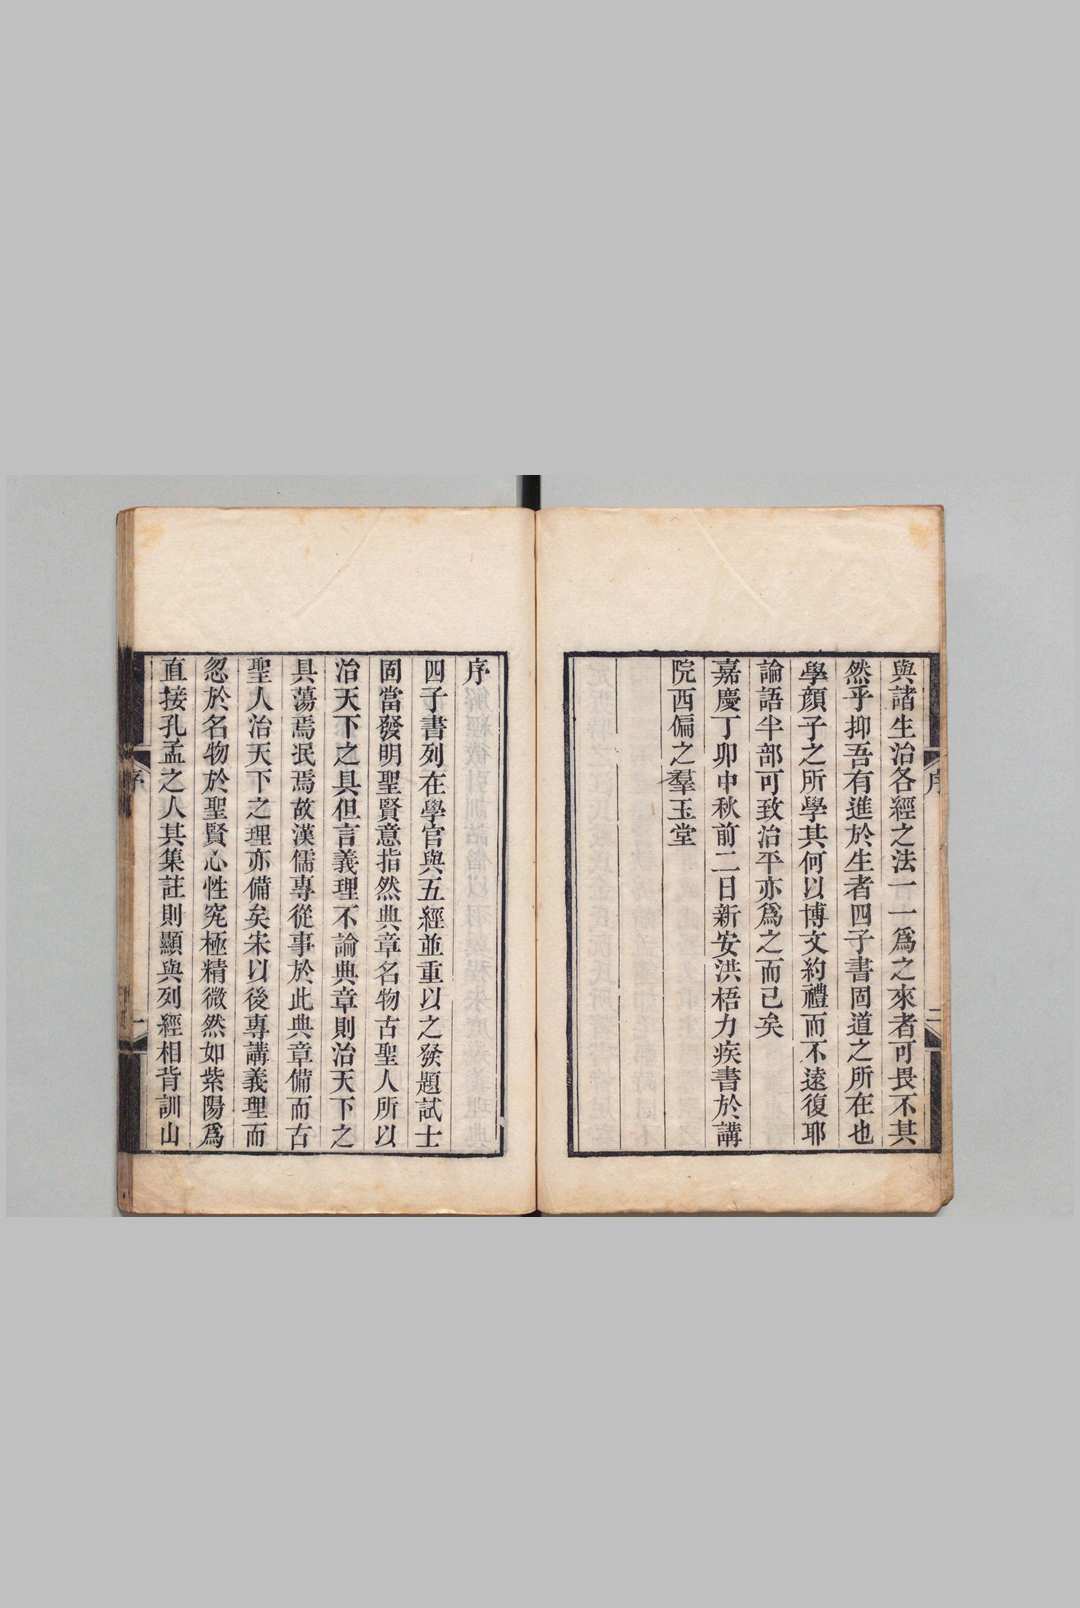 與諸生治各經之法一一爲之來者可畏不其
然乎抑吾有進於生者四子書固道之所在也
學顏子之所學其何以博文約禮而不遠復耶
論語半部可致治平亦爲之而已矣
嘉慶丁卯中秋前二日新安洪梧力疾書於講
院西偏之羣玉堂
序
二
序
四子書列在學官與五經並重以之發題試士
固當發明聖賢意指然典章名物古聖人所以
治天下之具但言義理不論典章則治天下之
具蕩焉泯焉故漢儒專從事於此典章備而古
聖人治天下之理亦備矣宋以後專講義理而
忽於名物於聖賢心性究極精微然如紫陽爲
直接孔孟之人其集註則顯與列經相背訓山
序
一